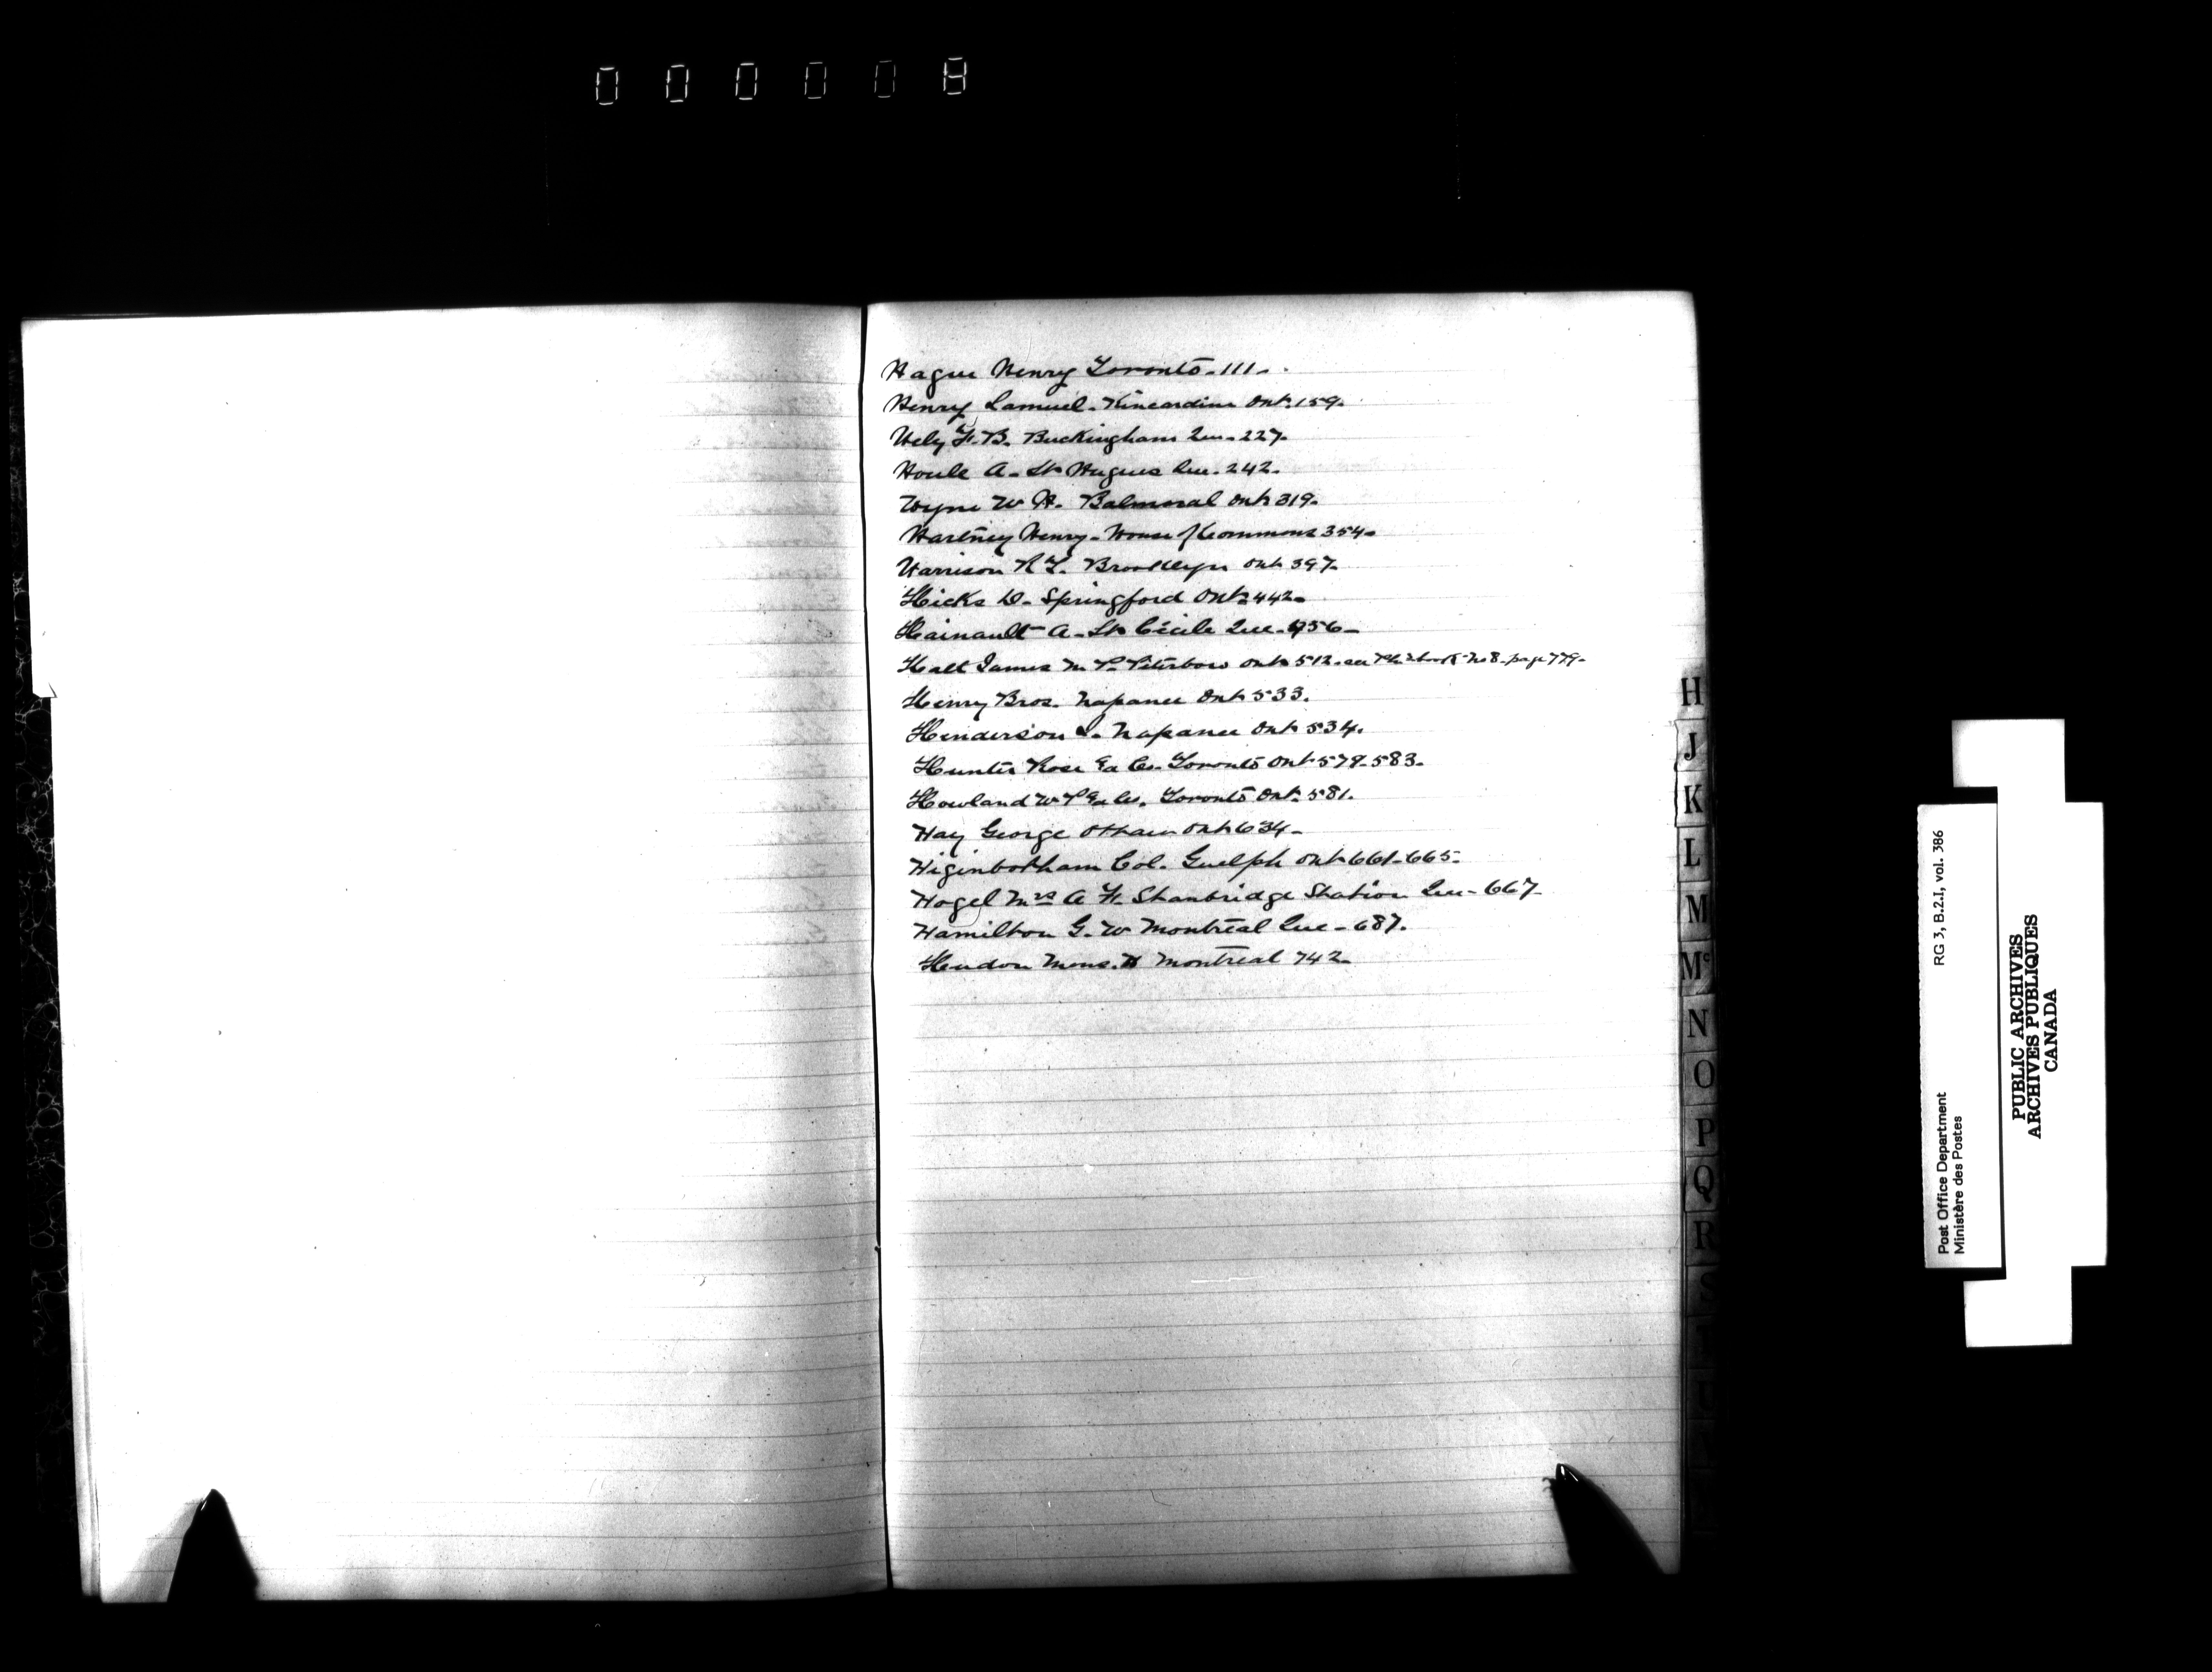 000008
Hague Henry Toronto-111-
Henry Samuel-Kincardine Ont.159-
Hely F.B. Buckingham Que-227-
Houle A-St Hugues Que.242-
Wyne W H. Balmoral Ont 319-
Hartney Henry-House of Commons 354-
Harrison R L. Brooklyn Ont 397-
Hicks D-Springford Ont-442-
Hainault A-St Cécile Que-456-
Hall James M.P. Peterboro Ont 512-see book-No8-page 779-
Henry Bros. Napanee Ont 533.
Henderson. Napanee Ont 534.
Hunter Rose & Co-Toronto Ont-579-583-
Howland W P & Co. Toronto Ont. 581.
Hay George Ottawa Ont 634-
Higinbotham Col. Guelph Ont 661-665-
Hogel Mrs A H. Stanbridge Station Que-667-
Hamilton G. W Montreal Que-687.
Hudon Mons. Montreal 742-
H
J
K
L
M
Mc
N
O
P
Q
R
S
Post Office Department RG 3, B.2.I, vol. 386
Ministère des Postes
PUBLIC ARCHIVES
ARCHIVES PUBLIQUES
CANADA